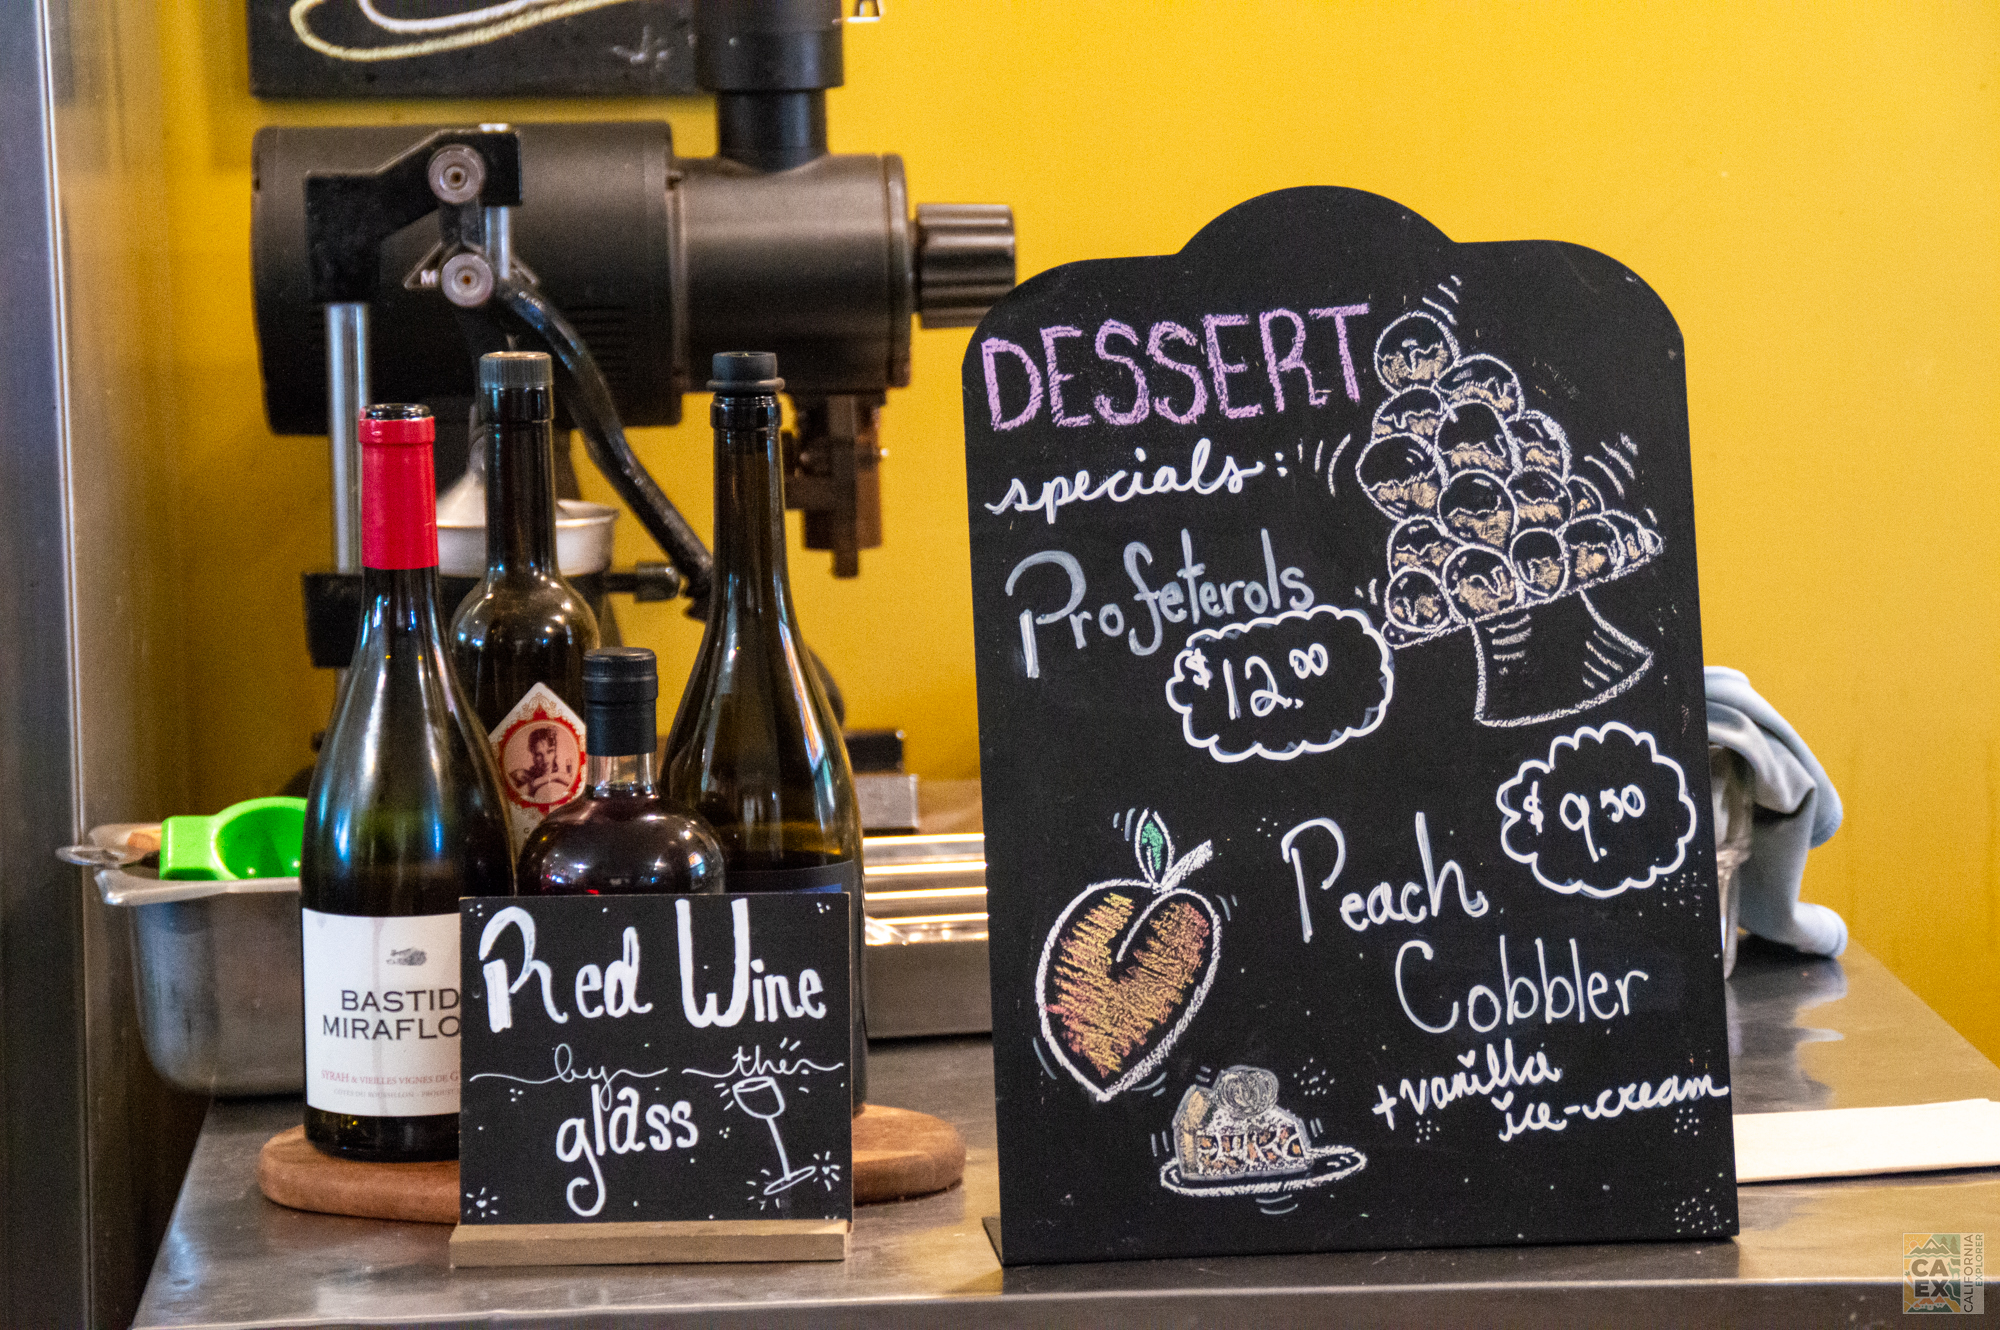 DESSERT
specials:
Profeterols
$12.00
$9.50
Peach
Cobbler
+ vanilla
ice-cream
Red Wine
by the
glass
BASTID
MIRAFLO
SYRAH & VIEILLES VIGNES DE G
M
CA
EX
CALIFORNIA
EXPLORER